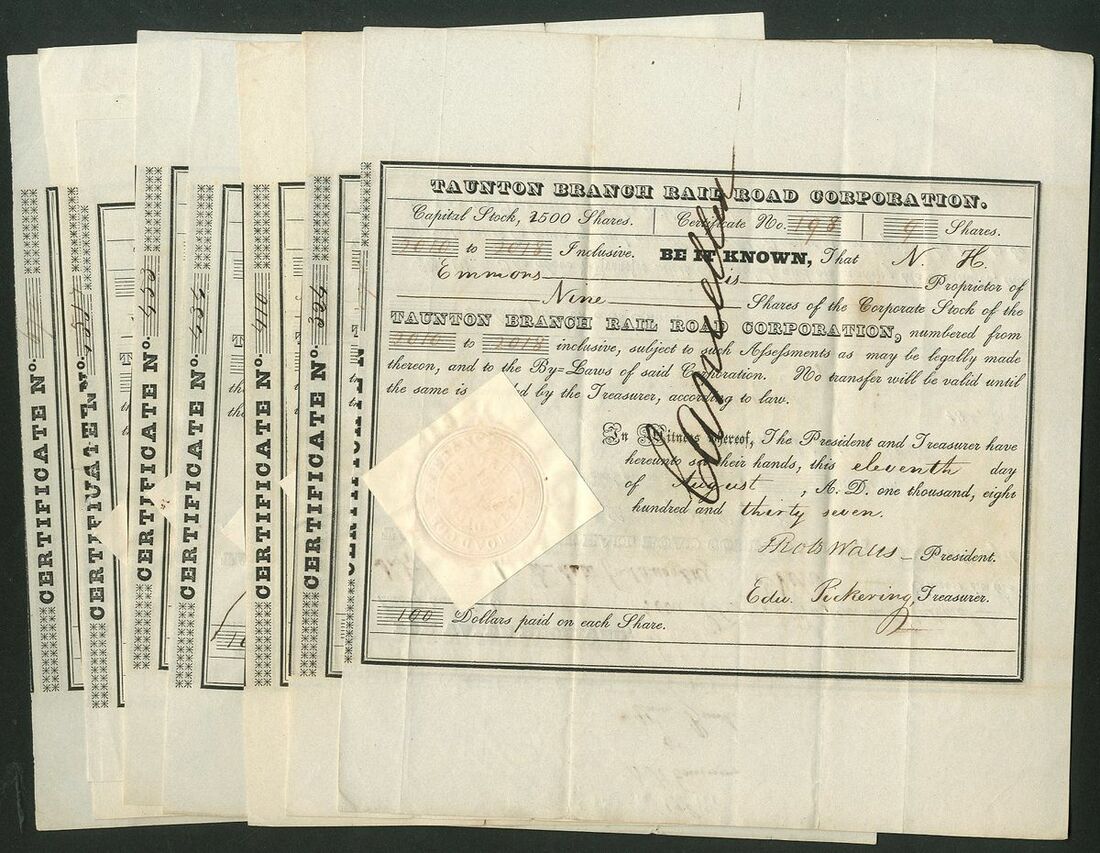 TAUNTON BRANCH RAIL ROAD CORPORATION.
Capital Stock, 2500 Shares. Certificate No. 198 9 Shares.
2010 to 2018 Inclusive. BE IT KNOWN, That N. H.
Emmons is Proprietor of
Nine Shares of the Corporate Stock of the
TAUNTON BRANCH RAIL ROAD CORPORATION, numbered from
2010 to 2018 inclusive, subject to such Assessments as may be legally made
thereon, and to the By=Laws of said Corporation. No transfer will be valid until
the same is by the Treasurer, according to law.
In Witness whereof, The President and Treasurer have
hereunto set their hands, this eleventh day
of August, A. D. one thousand, eight
hundred and thirty seven.
President.
Edw. Pickering, Treasurer.
100 Dollars paid on each Share.
Cancelled
CERTIFICATE No.
CERTIFICATE No.
CERTIFICATE No. 433
CERTIFICATE No. 434
CERTIFICATE No. 410
CERTIFICATE No.
CERTIFICATE N